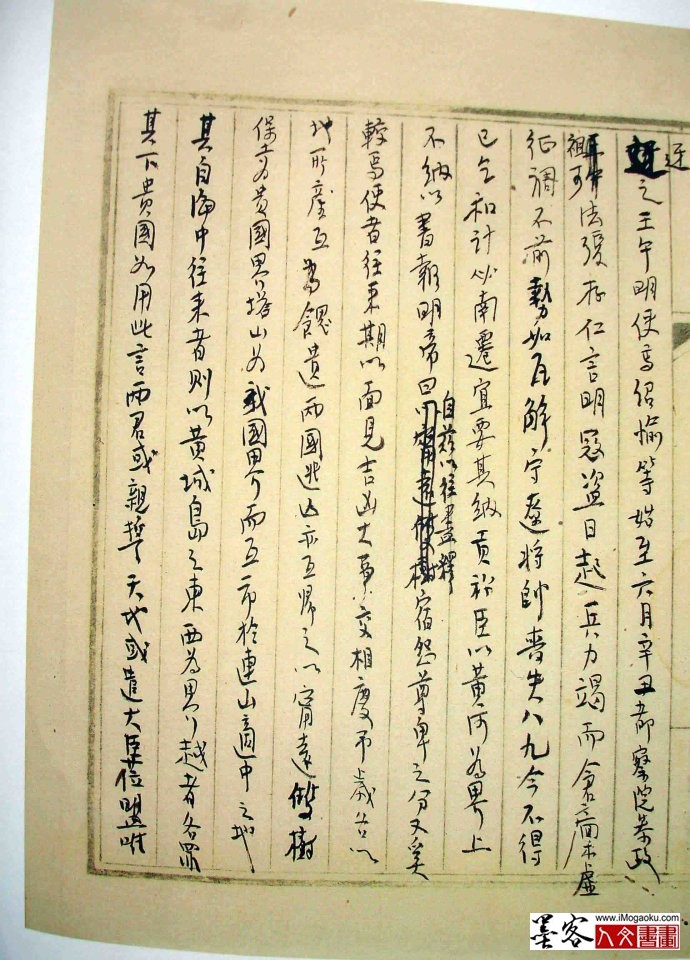 迓
之壬午明使馬紹愉等始至六月辛丑都察院參政
祖可法張存仁言明寇盜日起兵力竭而倉廩虛
征調不前勢如瓦解守遼將帥喪失八九今不得
已乞和計必南遷宜要其納貢稱臣以黃河為界上
不納以書報明帝曰自茲以往盡釋宿怨尊卑之分又奚
較焉使者往來期以面見吉凶大事交相慶弔歲各以
地所產互為餽遺兩國逃亡亦互歸之以甯遠雙樹
保為貴國界塔山為我國界而互市於連山適中之地
其自海中往來者則以黃城島之東西為界越者各罪
其下貴國如用此言兩君或親誓天地或遣大臣蒞盟唯
墨客
人文書畫
www.iMogaoku.com